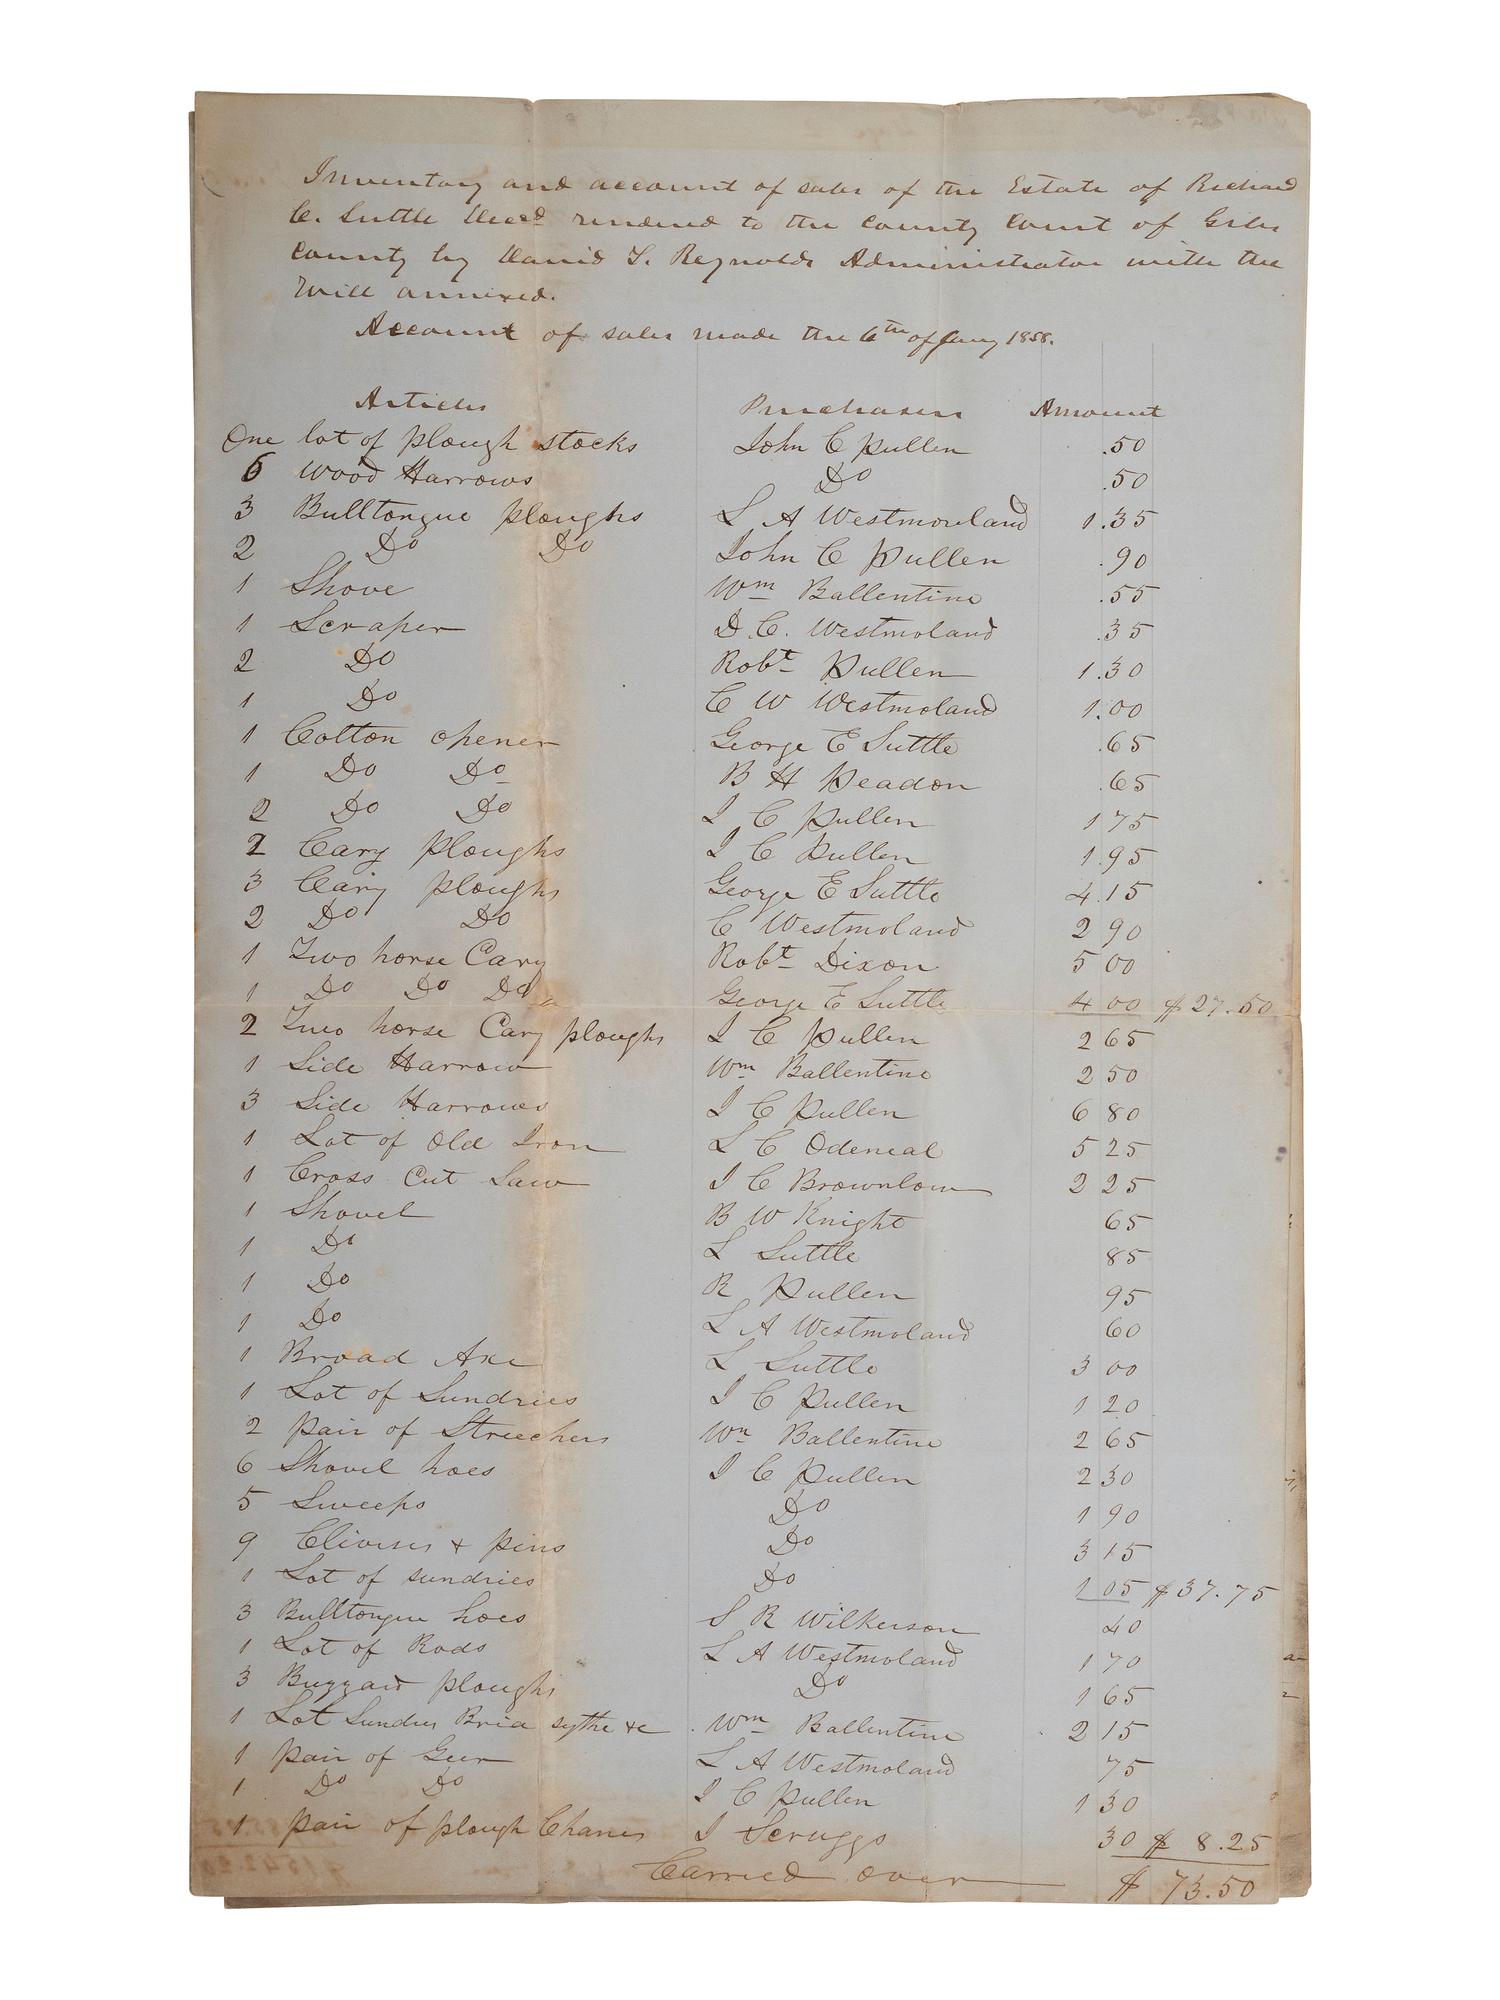 Inventory and account of sales of the Estate of Richard
C. Suttle Decsd rendered to the County Court of Giles
County by David T. Reynolds Administrator with the
Will annexed.
Account of sales made the 6th of Jany 1858.
Articles Purchasers Amount
One lot of plough stocks John C Pullen .50
6 Wood Harrows Do .50
3 Bulltongue ploughs L A Westmoreland 1.35
2 Do Do John C Pullen .90
1 Shove Wm Ballentine .55
1 Scraper D. C. Westmoland .35
2 Do Robt Pullen 1.30
1 Do C W Westmoland 1.00
1 Cotton opener George E Suttle .65
1 Do Do B H Peadon .65
2 Do Do J C Pullen 1 75
2 Cary ploughs J C Pullen 1.95
3 Cary ploughs George E Suttle 4.15
2 Do Do C Westmoland 2 90
1 Two horse Cary Robt Dixon 5 00
1 Do Do Do George E Suttle 4 00 $27.50
2 Two horse Cary ploughs J C Pullen 2 65
1 Side Harrow Wm Ballentine 2 50
3 Side Harrows J C Pullen 6 80
1 Lot of Old Iron L C Odeneal 5 25
1 Cross Cut Saw J C Brownlow 2 25
1 Shovel B W Knight 65
1 Do L Suttle 85
1 Do R Pullen 95
1 Do L A Westmoland 60
1 Broad Axe L Suttle 3 00
1 Lot of Sundries J C Pullen 1 20
2 pair of Streechers Wm Ballentine 2 65
6 Shovel hoes J C Pullen 2 30
5 Sweeps Do 1 90
9 Clivises + pins Do 3 15
1 Lot of sundries Do 1 05 $37.75
3 Bulltongue hoes S R Wilkerson 40
1 Lot of Rods L A Westmoland 1 70
3 Buzzard ploughs Do 1 65
1 Lot Sundres Bria sythe &c Wm Ballentine 2 15
1 pair of Geer L A Westmoland 75
1 Do Do J C Pullen 1 30
1 pair of plough Chanes J Scruggs 30 $ 8.25
Carried over $ 73.50